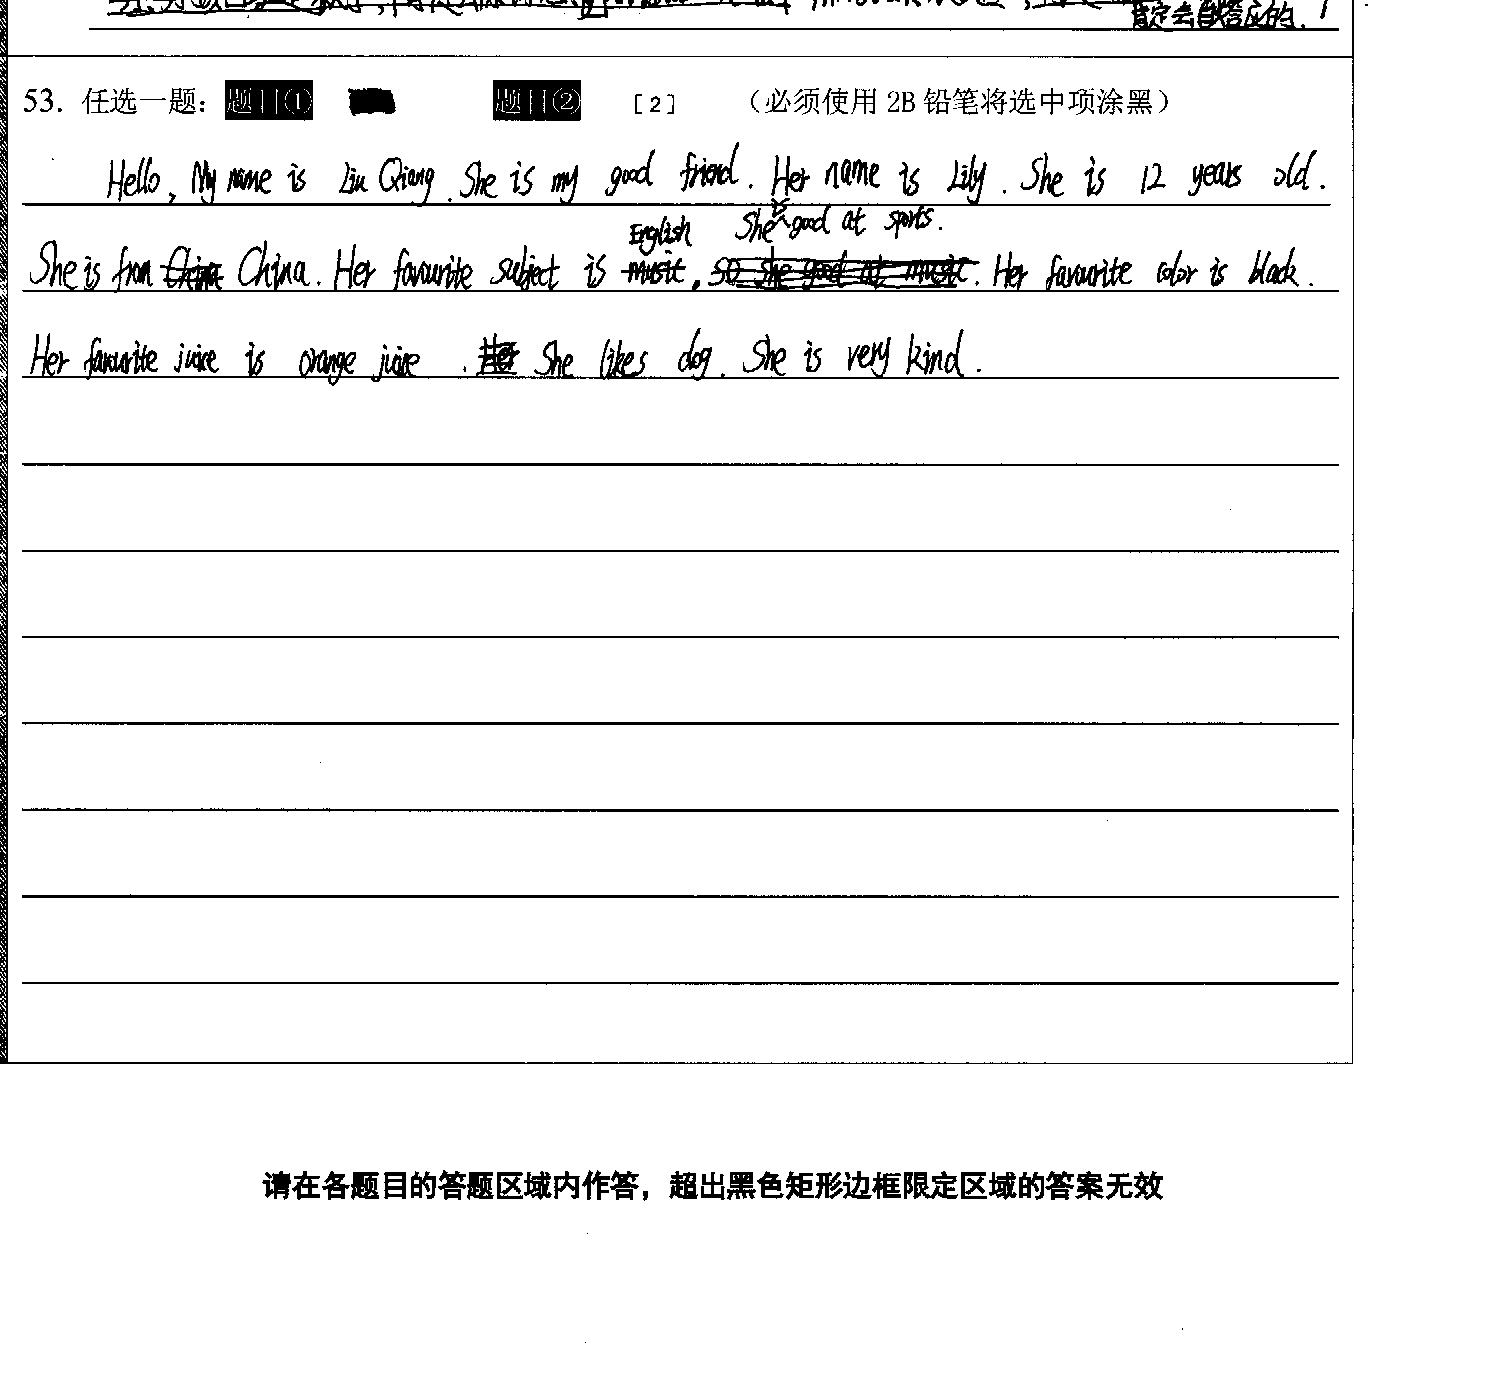 肯定会自答应的.
53. 任选一题: 题目① 题目② [2] (必须使用 2B 铅笔将选中项涂黑)
Hello, My name is Liu Qiang. She is my good friend. Her name is Lily. She is 12 years old.
English She is good at sports.
She is from China China. Her favourite subject is music, so she good at music. Her favourite color is black.
Her favourite juice is orange juice. Her She likes dog. She is very kind.
请在各题目的答题区域内作答，超出黑色矩形边框限定区域的答案无效